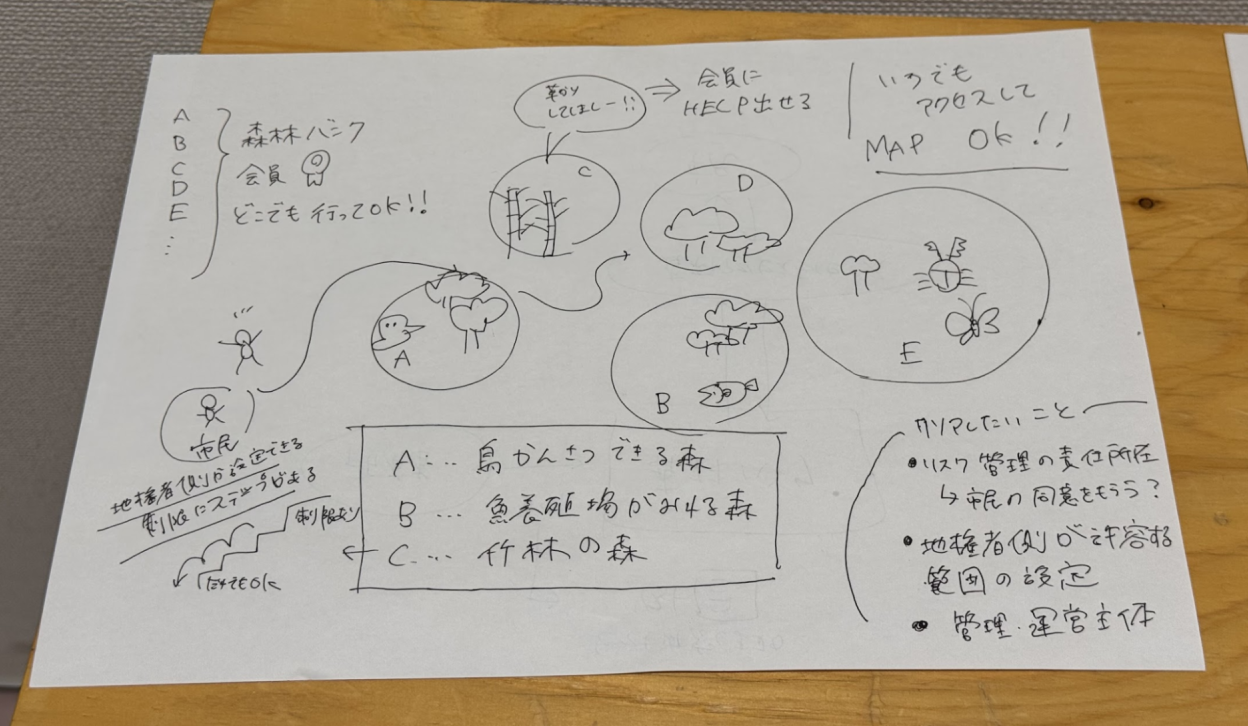 A
B
C
D
E
⋮
森林バンク
会員
どこでも行ってOK!!
草かり
してほしー!!
⇒ 会員に
HELP出せる
いつでも
アクセスして
MAP OK!!
C
D
A
B
E
市民
地権者側が設定できる
制限にステップがある
制限あり
だれでもOK
A… 鳥かんさつできる森
B… 魚養殖場がみれる森
C… 竹林の森
クリアしたいこと
・リスク管理の責任所在
↳ 市民の同意をもらう?
・地権者側が許容する
範囲の設定
・管理・運営主体